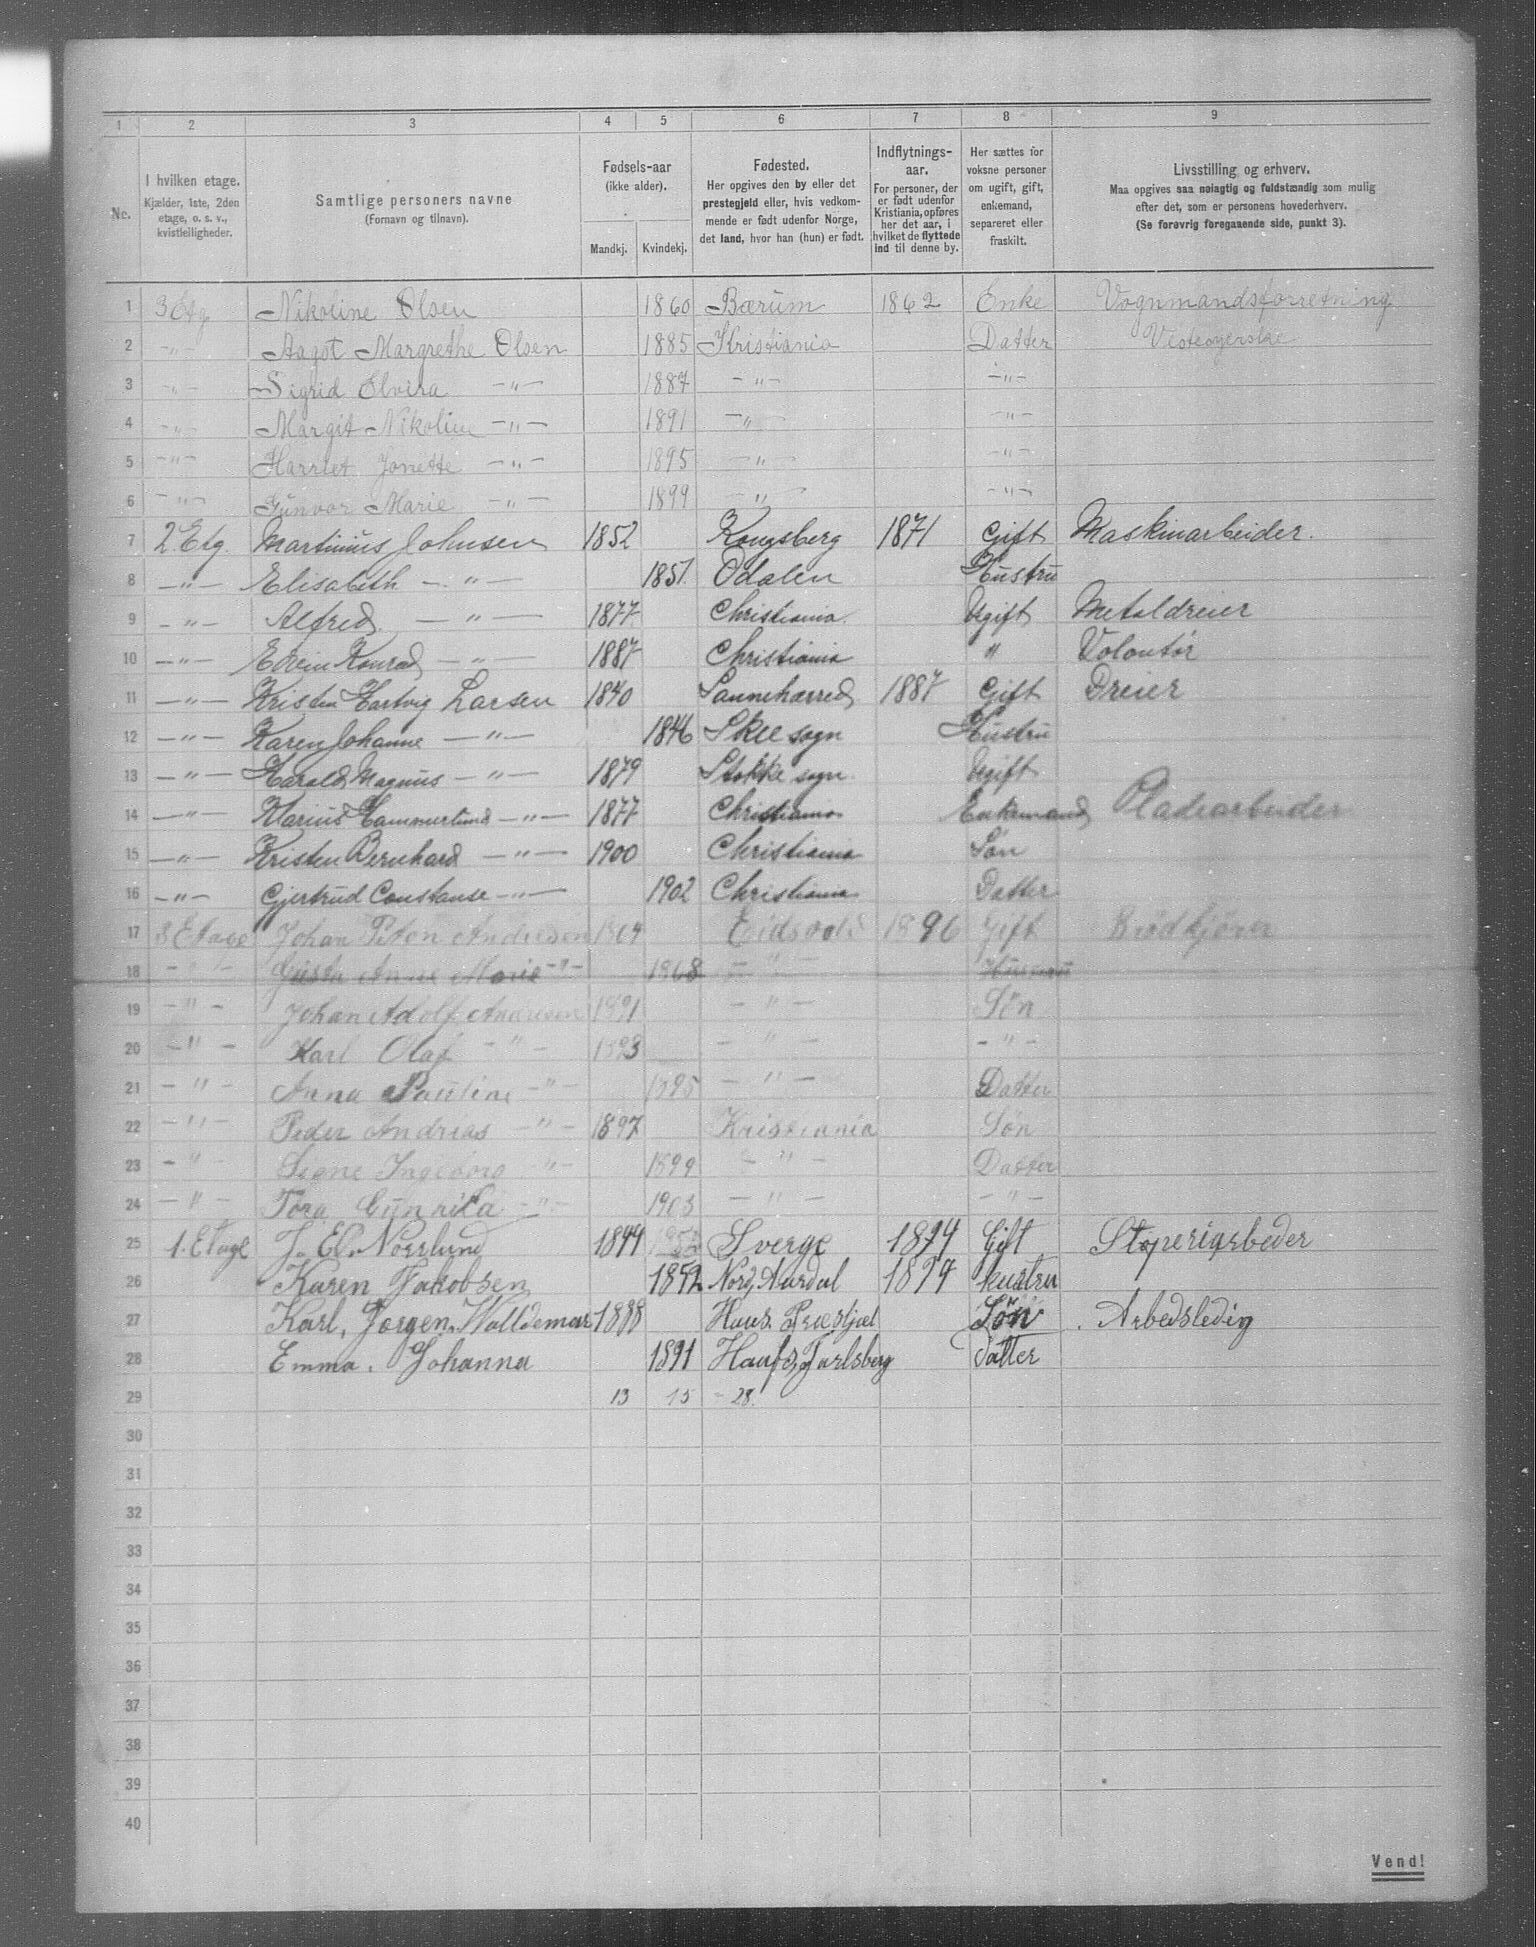 1 2 3 4 5 6 7 8 9
No.
I hvilken etage.
Kjælder, 1ste, 2den
etage, o. s. v.,
kvistleiligheder.
Samtlige personers navne
(Fornavn og tilnavn).
Fødsels-aar
(ikke alder).
Mandkj. Kvindekj.
Fødested.
Her opgives den by eller det
prestegjeld eller, hvis vedkom-
mende er født udenfor Norge,
det land, hvor han (hun) er født.
Indflytnings-
aar.
For personer, der
er født udenfor
Kristiania, opføres
her det aar, i
hvilket de flyttede
ind til denne by.
Her sættes for
voksne personer
om ugift, gift,
enkemand,
separeret eller
fraskilt.
Livsstilling og erhverv.
Maa opgives saa nøiagtig og fuldstændig som mulig
efter det, som er personens hovederhverv.
(Se forøvrig foregaaende side, punkt 3).
1 3 Etg Nikoline Olsen 1860 Bærum 1862 Enke Vognmandsforretning
2 -"- Aagot Margrethe Olsen 1885 Kristiania Datter
3 -"- Sigrid Elvira -"- 1887 -"- -"-
4 -"- Margit Nikoline -"- 1891 -"- -"-
5 -"- Harriet Jonette -"- 1895 -"- -"-
6 -"- Gunvor Marie -"- 1899 -"- -"-
7 2 Etg. Martinius Johnsen 1852 Kongsberg 1871 Gift Maskinarbeider.
8 -"- Elisabeth -"- 1851 Odalen Hustru
9 -"- Alfred -"- 1877 Christiania Ugift Metaldreier
10 -"- Edvin Konrad -"- 1887 Christiania " Volontør
11 -"- Kristen Hartvig Larsen 1840 Sanneherred 1887 Gift Dreier
12 -"- Karen Johanne -"- 1846 Skee sogn Hustru
13 -"- Harald Magnus -"- 1879 Stokke sogn Ugift
14 -"- Marius Hammerlund -"- 1877 Christiania Enkemand Pladearbeider
15 -"- Kristen Bernhard -"- 1900 Christiania Søn
16 -"- Gjertrud Constanse -"- 1902 Christiania Datter
17 3 Etage Johan Peten Andresen Eidsvold 1896 Gift Brødkjører
18 -"- Gusta Anne Marie -"- 1868 -"-
19 -"- Johan Adolf Andresen 1891 -"- Søn
20 -"- Karl Olaf -"- 1893 -"- -"-
21 -"- Anna Pauline -"- 1895 -"- Datter
22 -"- Peder Andrias -"- 1897 Kristiania Søn
23 -"- Signe Ingeborg -"- 1899 -"- Datter
24 -"- Tora Gunrika -"- 1903 -"- -"-
25 1. Etage J. El. Norrlund 1844 Sverge 1874 Gift Stoperiarbeder
26 Karen Jakobsen 1852 Nord Aurdal 1877 hustru
27 Karl, Jorgen, Walldemar 1888 Søn Arbedsledig
28 Emma. Johanna 1891 Datter
29 13 15 - 28.
30
31
32
33
34
35
36
37
38
39
40
Vend!